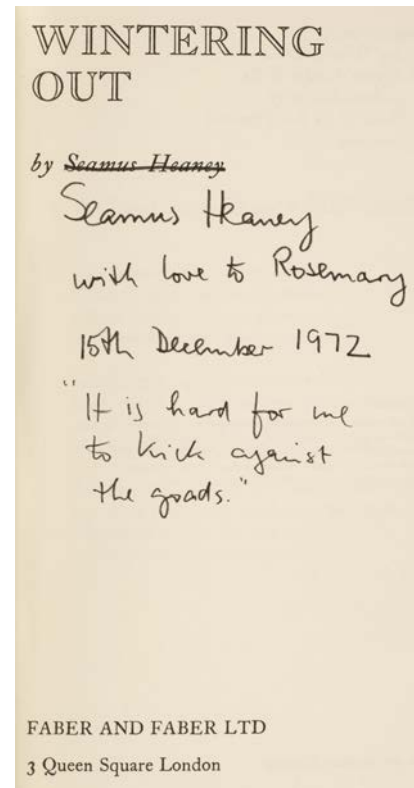 WINTERING
OUT
by Seamus Heaney
Seamus Heaney
with love to Rosemary
15th December 1972
"It is hard for me
to kick against
the goads."
FABER AND FABER LTD
3 Queen Square London